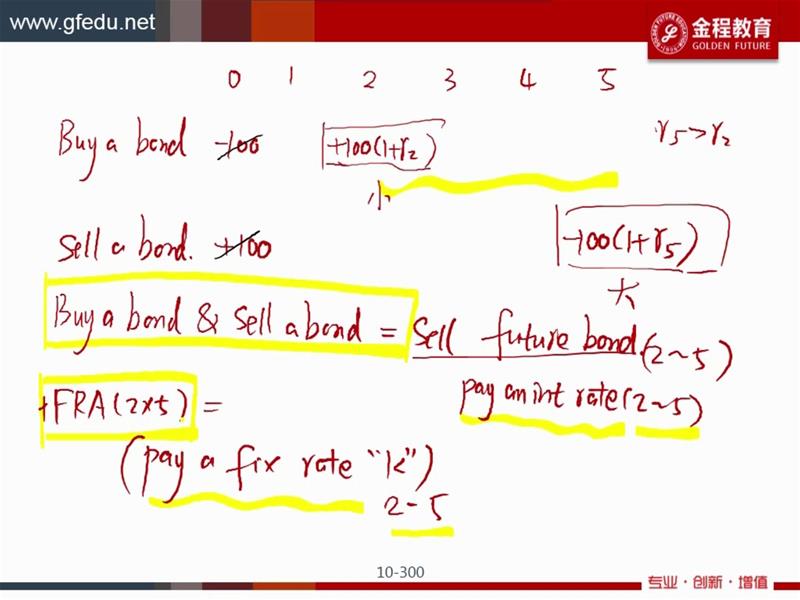 www.gfedu.net
金程教育
GOLDEN FUTURE
0 1 2 3 4 5
Buy a bond -100 +100(1+r₂) r₅>r₂
小
Sell a bond. +100 -100(1+r₅)
大
Buy a bond & Sell a bond = Sell future bond (2~5)
+FRA(2×5) = pay an int rate(2~5)
(pay a fix rate "k")
2-5
10-300
专业·创新·增值